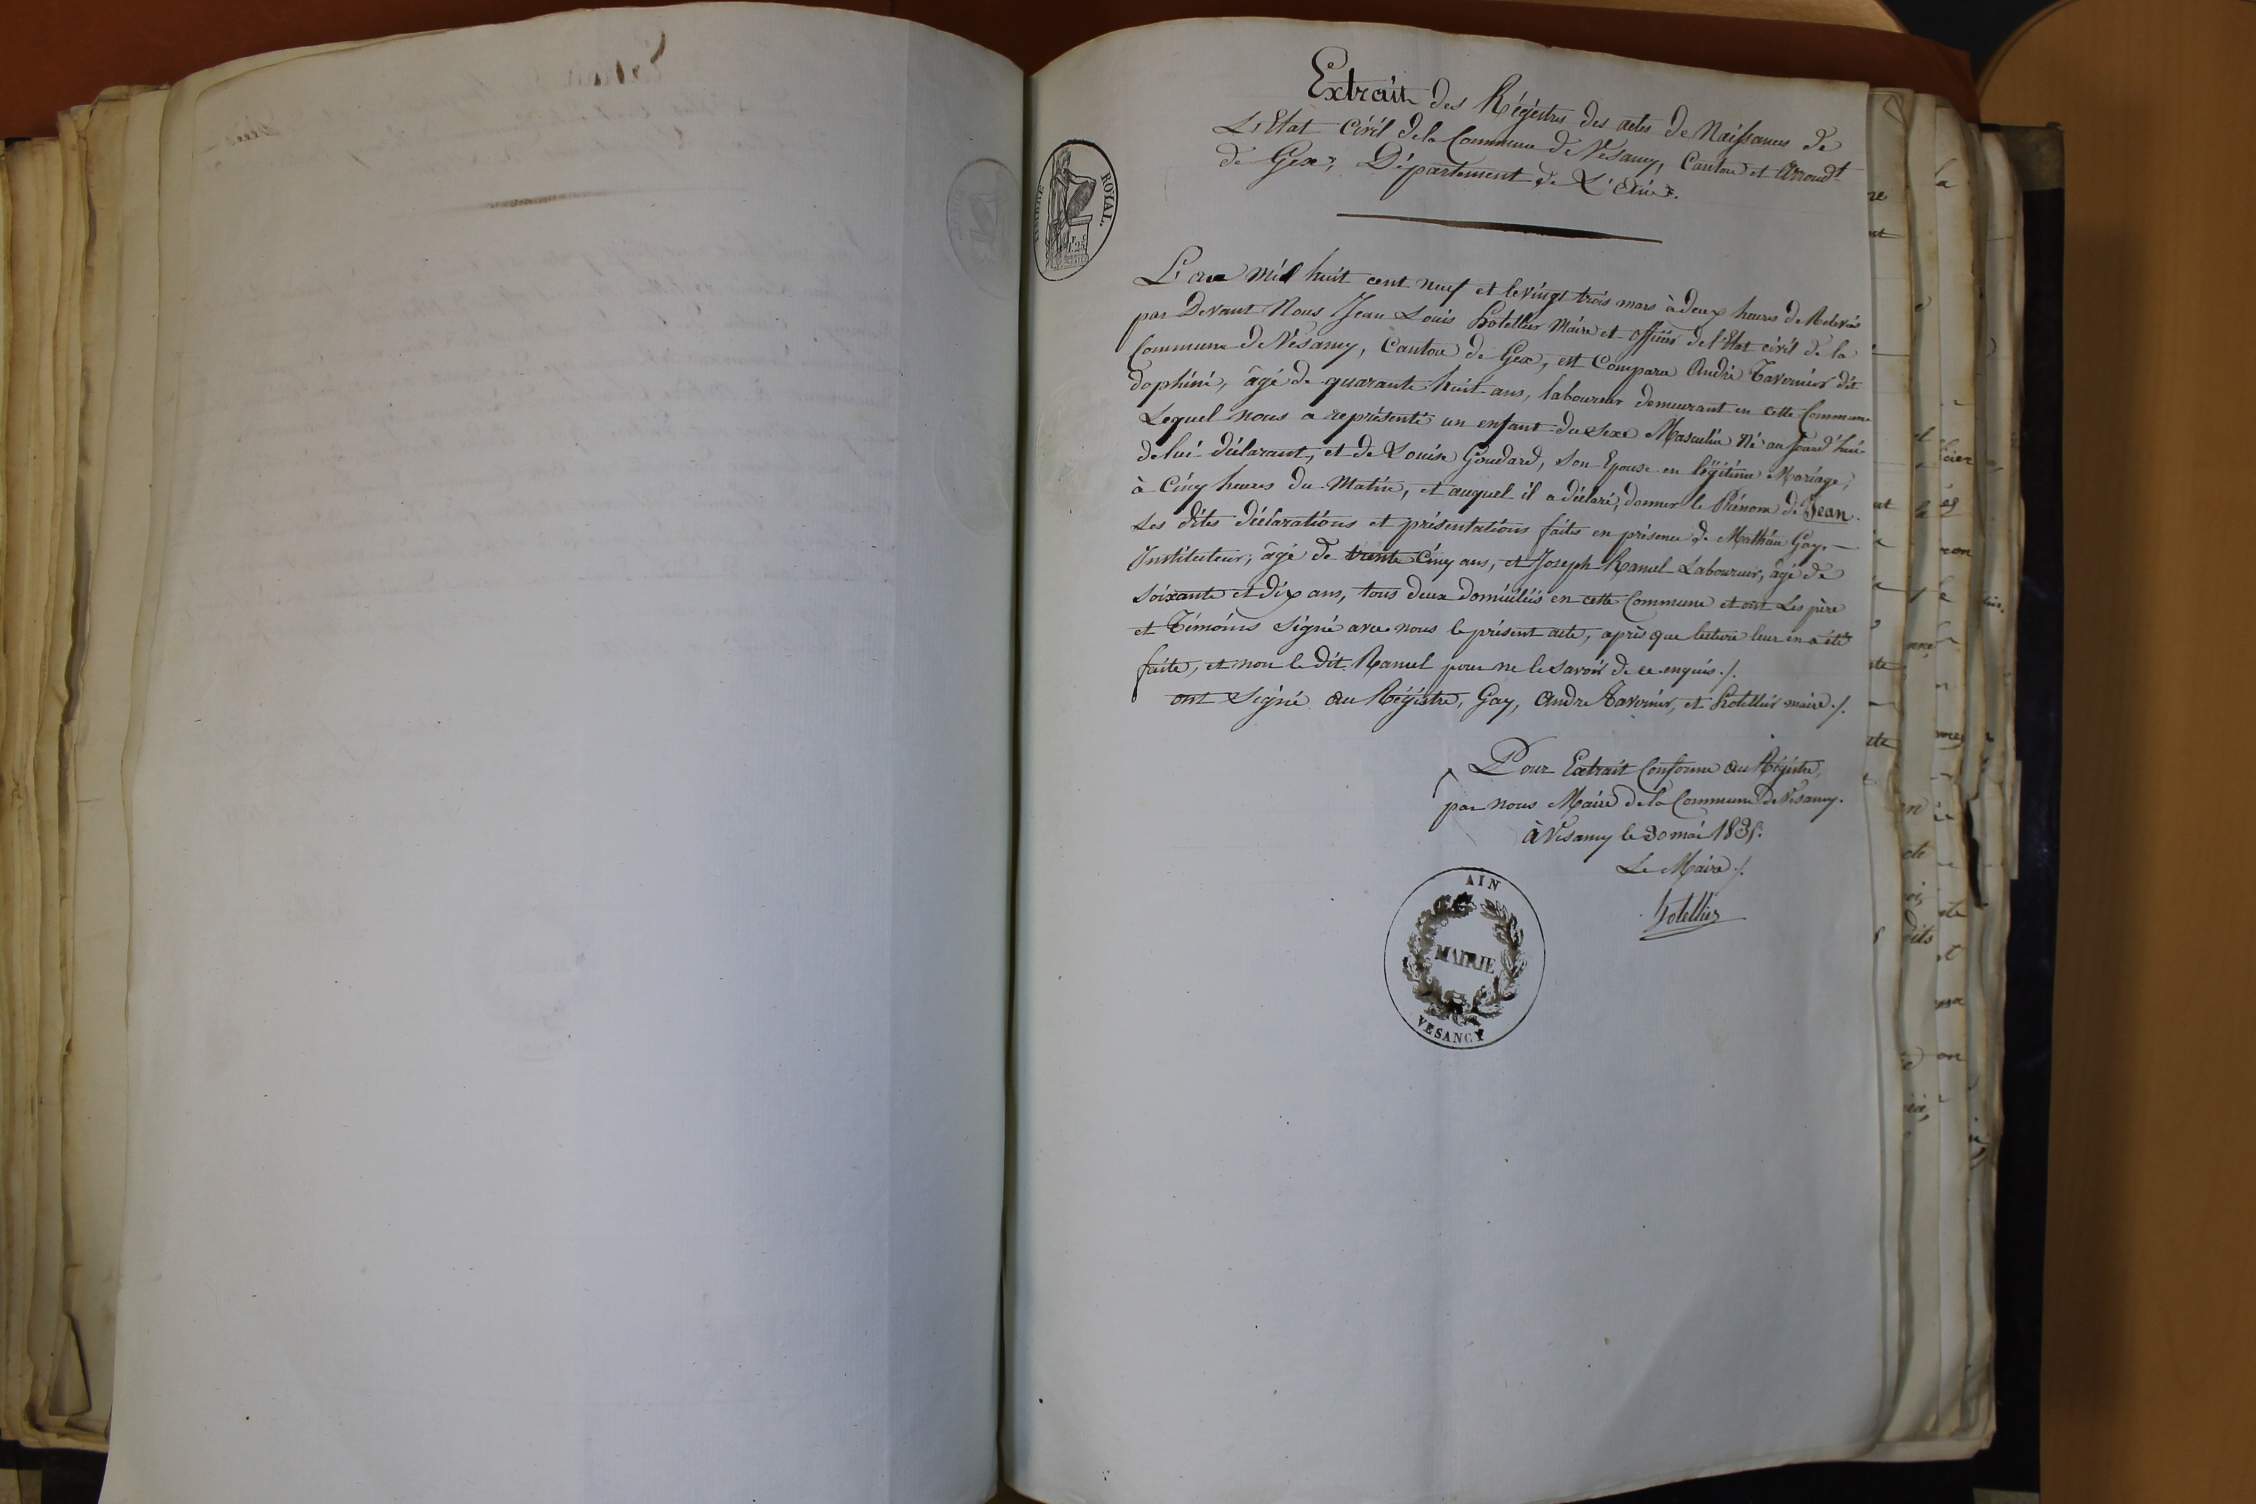 Extrait des Régistres des actes de Naissances de
L'Etat civil de la Commune de Vesancy, Canton et Arrondt
de Gex, Département de L'Ain.
TIMBRE ROYAL.
L'an mil huit cent neuf et le vingt trois mars à deux heures de Relevée
par Devant Nous Jean Louis hotellier Maire et officier de l'Etat civil de la
Commune de Vésancy, Canton de Gex, est Comparu André Tavernier dit
dophiné, âgé de quarante huit ans, laboureur demeurant en cette Commune
Lequel nous a représenté un enfant du sexe Masculin Né au Jourd'hui
de lui déclarant, et de Louise Goudard, son Epouse en légitime Mariage,
à Cinq heures du Matin, et auquel il a déclaré, donner le Prénom de Jean.
Les dites déclarations et présentations faites en présence de Mathieu Gay,
Instituteur, âgé de trente Cinq ans, et Joseph Ramel Laboureur, âgé de
soixante et dix ans, tous deux domiciliés en cette Commune et ont Les père
et Témoins signé avec nous le présent acte, après que lecture leur en a été
faite, et non le dit Ramel pour ne le savoir de ce enquis ./.
ont signé au Régistre, Gay, André Tavernier, et hotellier maire ./.
Pour Extrait Conforme au Régistre,
par nous Maire de la Commune de Vesancy.
à Vesancy le 30 mai 1835.
Le Maire ./.
hotellier
AIN
MAIRIE
VESANCY